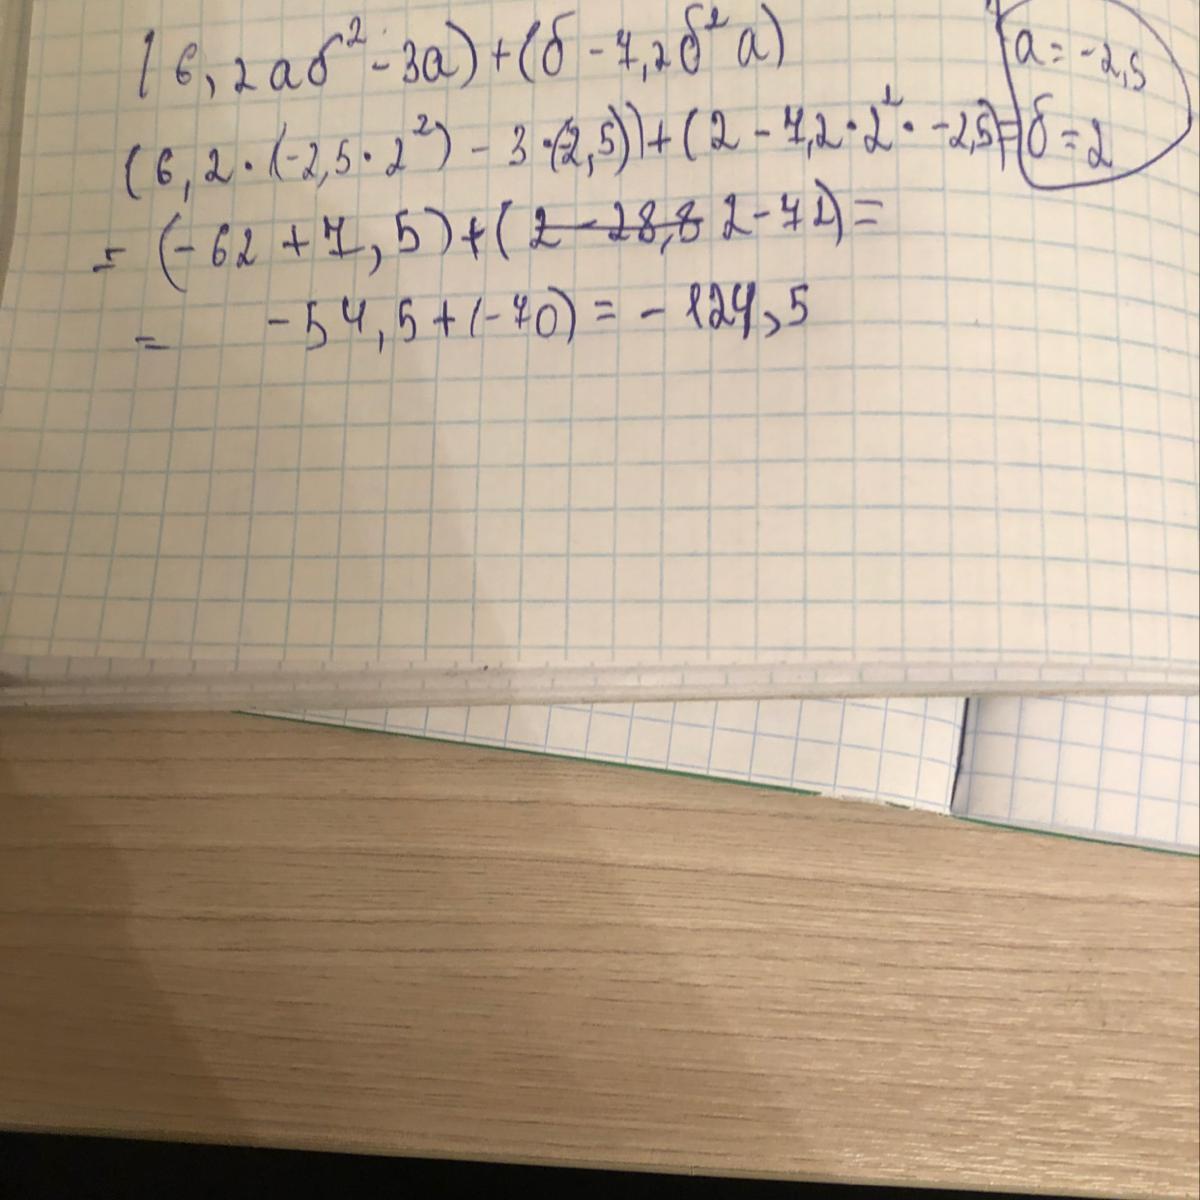 (6,2аб² - 3а) + (б - 7,2б²а)
а = -2,5
(6,2 · (-2,5 · 2²) - 3 · (2,5)) + (2 - 7,2 · 2² · -2,5) =
б = 2
= (-62 + 7,5) + (2 - 28,8 2 - 72) =
= -54,5 + (-70) = -124,5